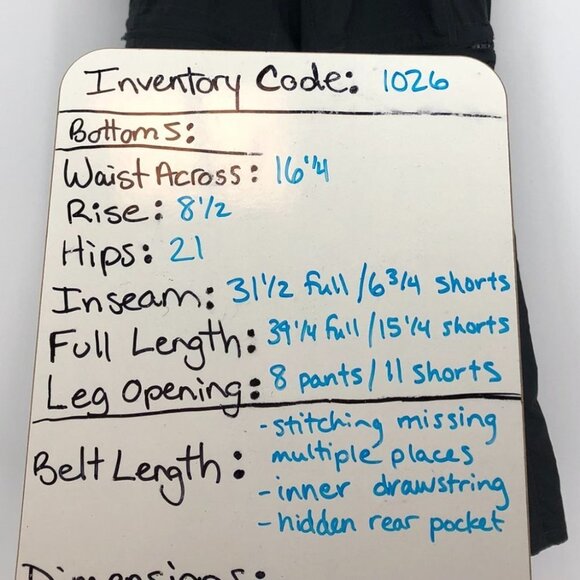 Inventory Code: 1026
Bottoms:
Waist Across: 16 1/4
Rise: 8 1/2
Hips: 21
Inseam: 31 1/2 full/6 3/4 shorts
Full Length: 39 1/4 full/15 1/4 shorts
Leg Opening: 8 pants/11 shorts
Belt Length:
-stitching missing
multiple places
-inner drawstring
-hidden rear pocket
Dimensions: